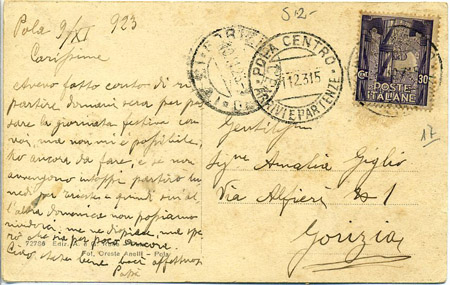 Pola 9/XI 923
Carissime
Avevo fatto conto di ri
partire domani sera per pas
sare la giornata festiva con
voi, ma non mi è possibile,
ho ancora da fare, e se non
avvengono intoppi partirò lu
nedì per Trieste e quindi sino al
l'altra domenica non possiamo
me ne dispiace, ma spe
rò che sia per poco ancora.
State bene baci affettuosi
Papà
72786 Editr. A.
Fot. Oreste Anelli - Pola
512-
POLA CENTRO
ARRIVI E PARTENZE
Cent. 30
POSTE
ITALIANE
17
Gentilissima
Sigra Amalia Giglio
Via Alfieri No 1
Gorizia